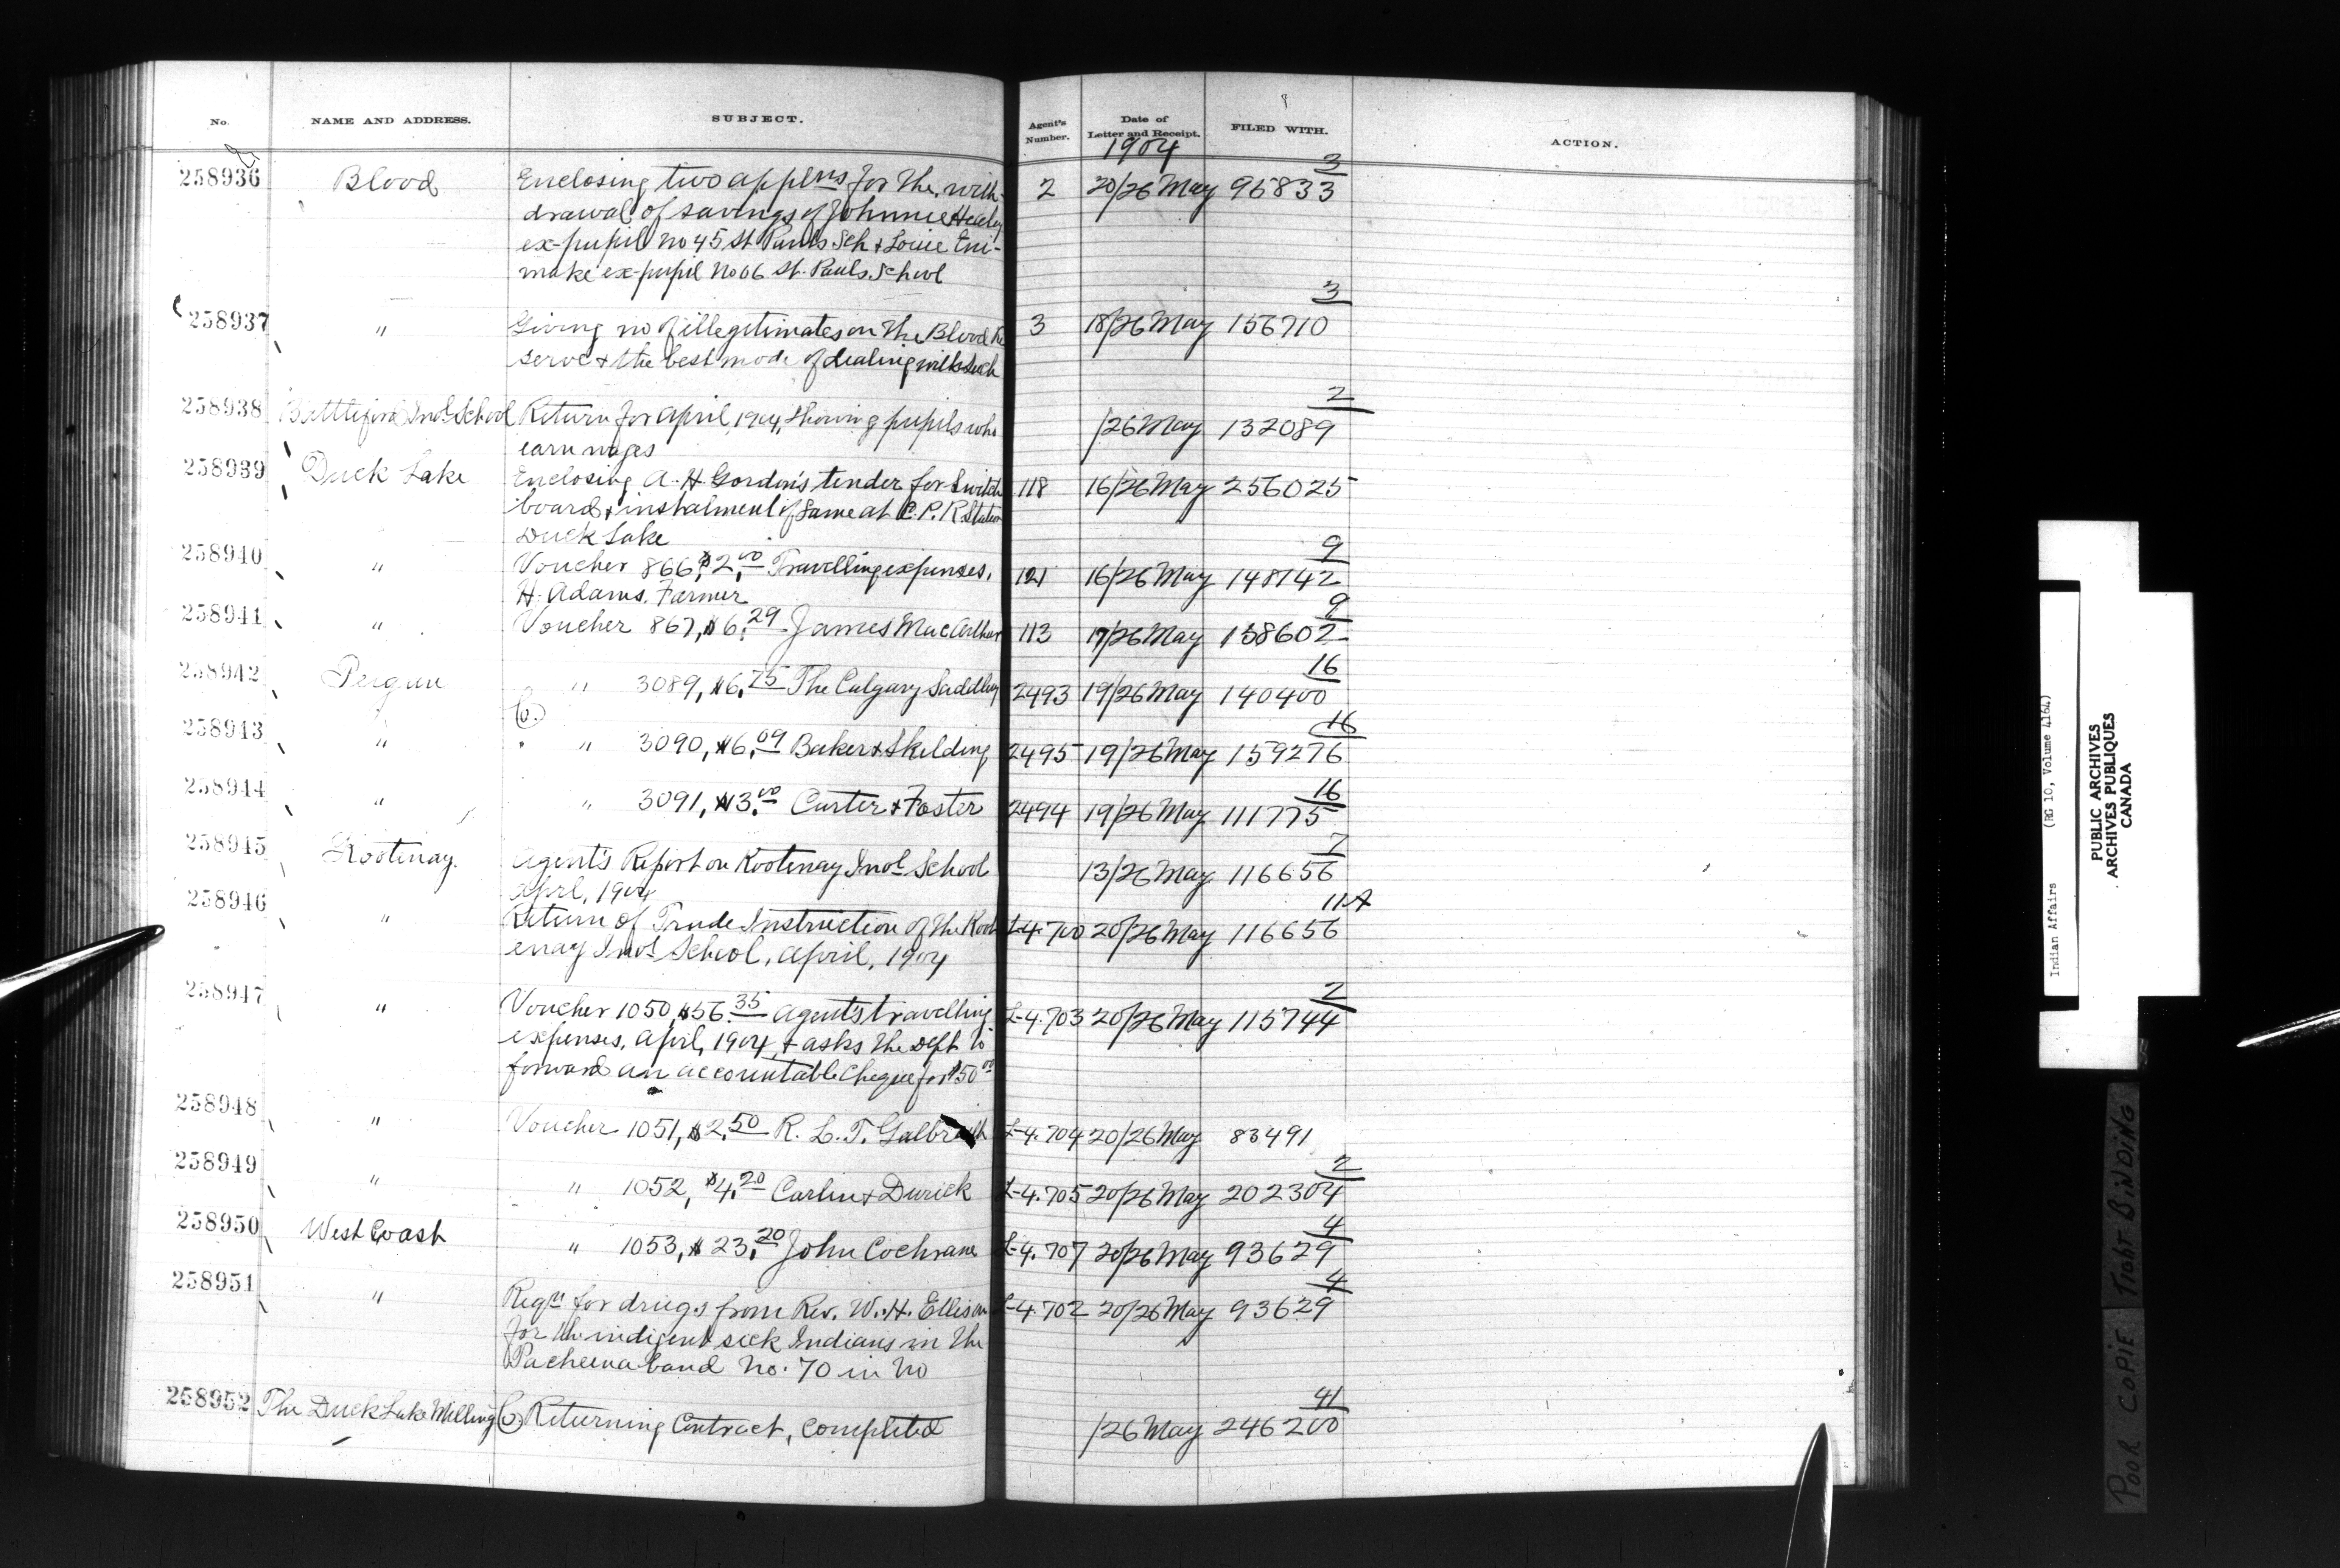 No. NAME AND ADDRESS. SUBJECT. Agent's Number. Date of Letter and Receipt. FILED WITH. ACTION.
1904
258936 Blood Enclosing two applns for the with- 2 20/26 May 95833 3
drawal of savings of Johnnie Healy
ex-pupil no 45 St Pauls Sch & Louie Eni-
make ex-pupil No 06 St. Pauls School
258937 " Giving no of illegitimates on the Blood Re 3 18/26 May 156710 3
serve & the best mode of dealing with such
258938 Battleford Indl School Return for April 1904, showing pupils who /26 May 132089 2
earn wages
258939 Duck Lake Enclosing A. H. Gordon's tender for Switch 118 16/26 May 256025
board & instalment of same at C.P.R. Station
Duck Lake
258940 " Voucher 866, $2.00 Travelling expenses, 121 16/26 May 148742 9
H. Adams. Farmer
258941 " Voucher 867, $6.29 James MacArthur 113 17/26 May 158602 9
258942 Peigan " 3089, $6.75 The Calgary Saddlery 2493 19/26 May 140400 16
Co.
258943 " " 3090, $6.09 Baker & Skelding 2495 19/26 May 159276 16
258944 " " 3091, $13.00 Carter & Foster 2494 19/26 May 111775 16
258945 Kootenay. Agent's Report on Kootenay Indl School 13/26 May 116656 7
April, 1904
258946 " Return of Trade Instruction of the Koot L-4.700 20/26 May 116656 11A
enay Indl School, April, 1904
258947 " Voucher 1050, $56.35 Agent's travelling L-4.703 20/26 May 115744 2
expenses, April, 1904, & asks the Dept to
forward an accountable cheque for $50.00
258948 " Voucher 1051, $2.50 R. L. T. Galbraith L-4.704 20/26 May 83491
258949 " " 1052, $4.20 Carlin & Durick L-4.705 20/26 May 202304 2
258950 West Coast " 1053, $23.20 John Cochrane L-4.707 20/26 May 93629 4
258951 " Reqn for drugs from Rev. W. H. Ellison L-4.702 20/26 May 93629 4
for the indigent sick Indians in the
Pacheena band No. 70 in No
258952 The Duck Lake Milling Co Returning Contract, completed /26 May 246200 41
Indian Affairs (RG 10, Volume 4164)
PUBLIC ARCHIVES
ARCHIVES PUBLIQUES
CANADA
POOR COPIE TIGHT BINDING